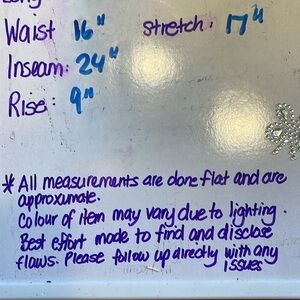 Waist 16" stretch: 17"
Inseam: 24"
Rise: 9"
* All measurements are done flat and are
approximate.
Colour of item may vary due to lighting.
Best effort made to find and disclose
flaws. Please follow up directly with any
issues